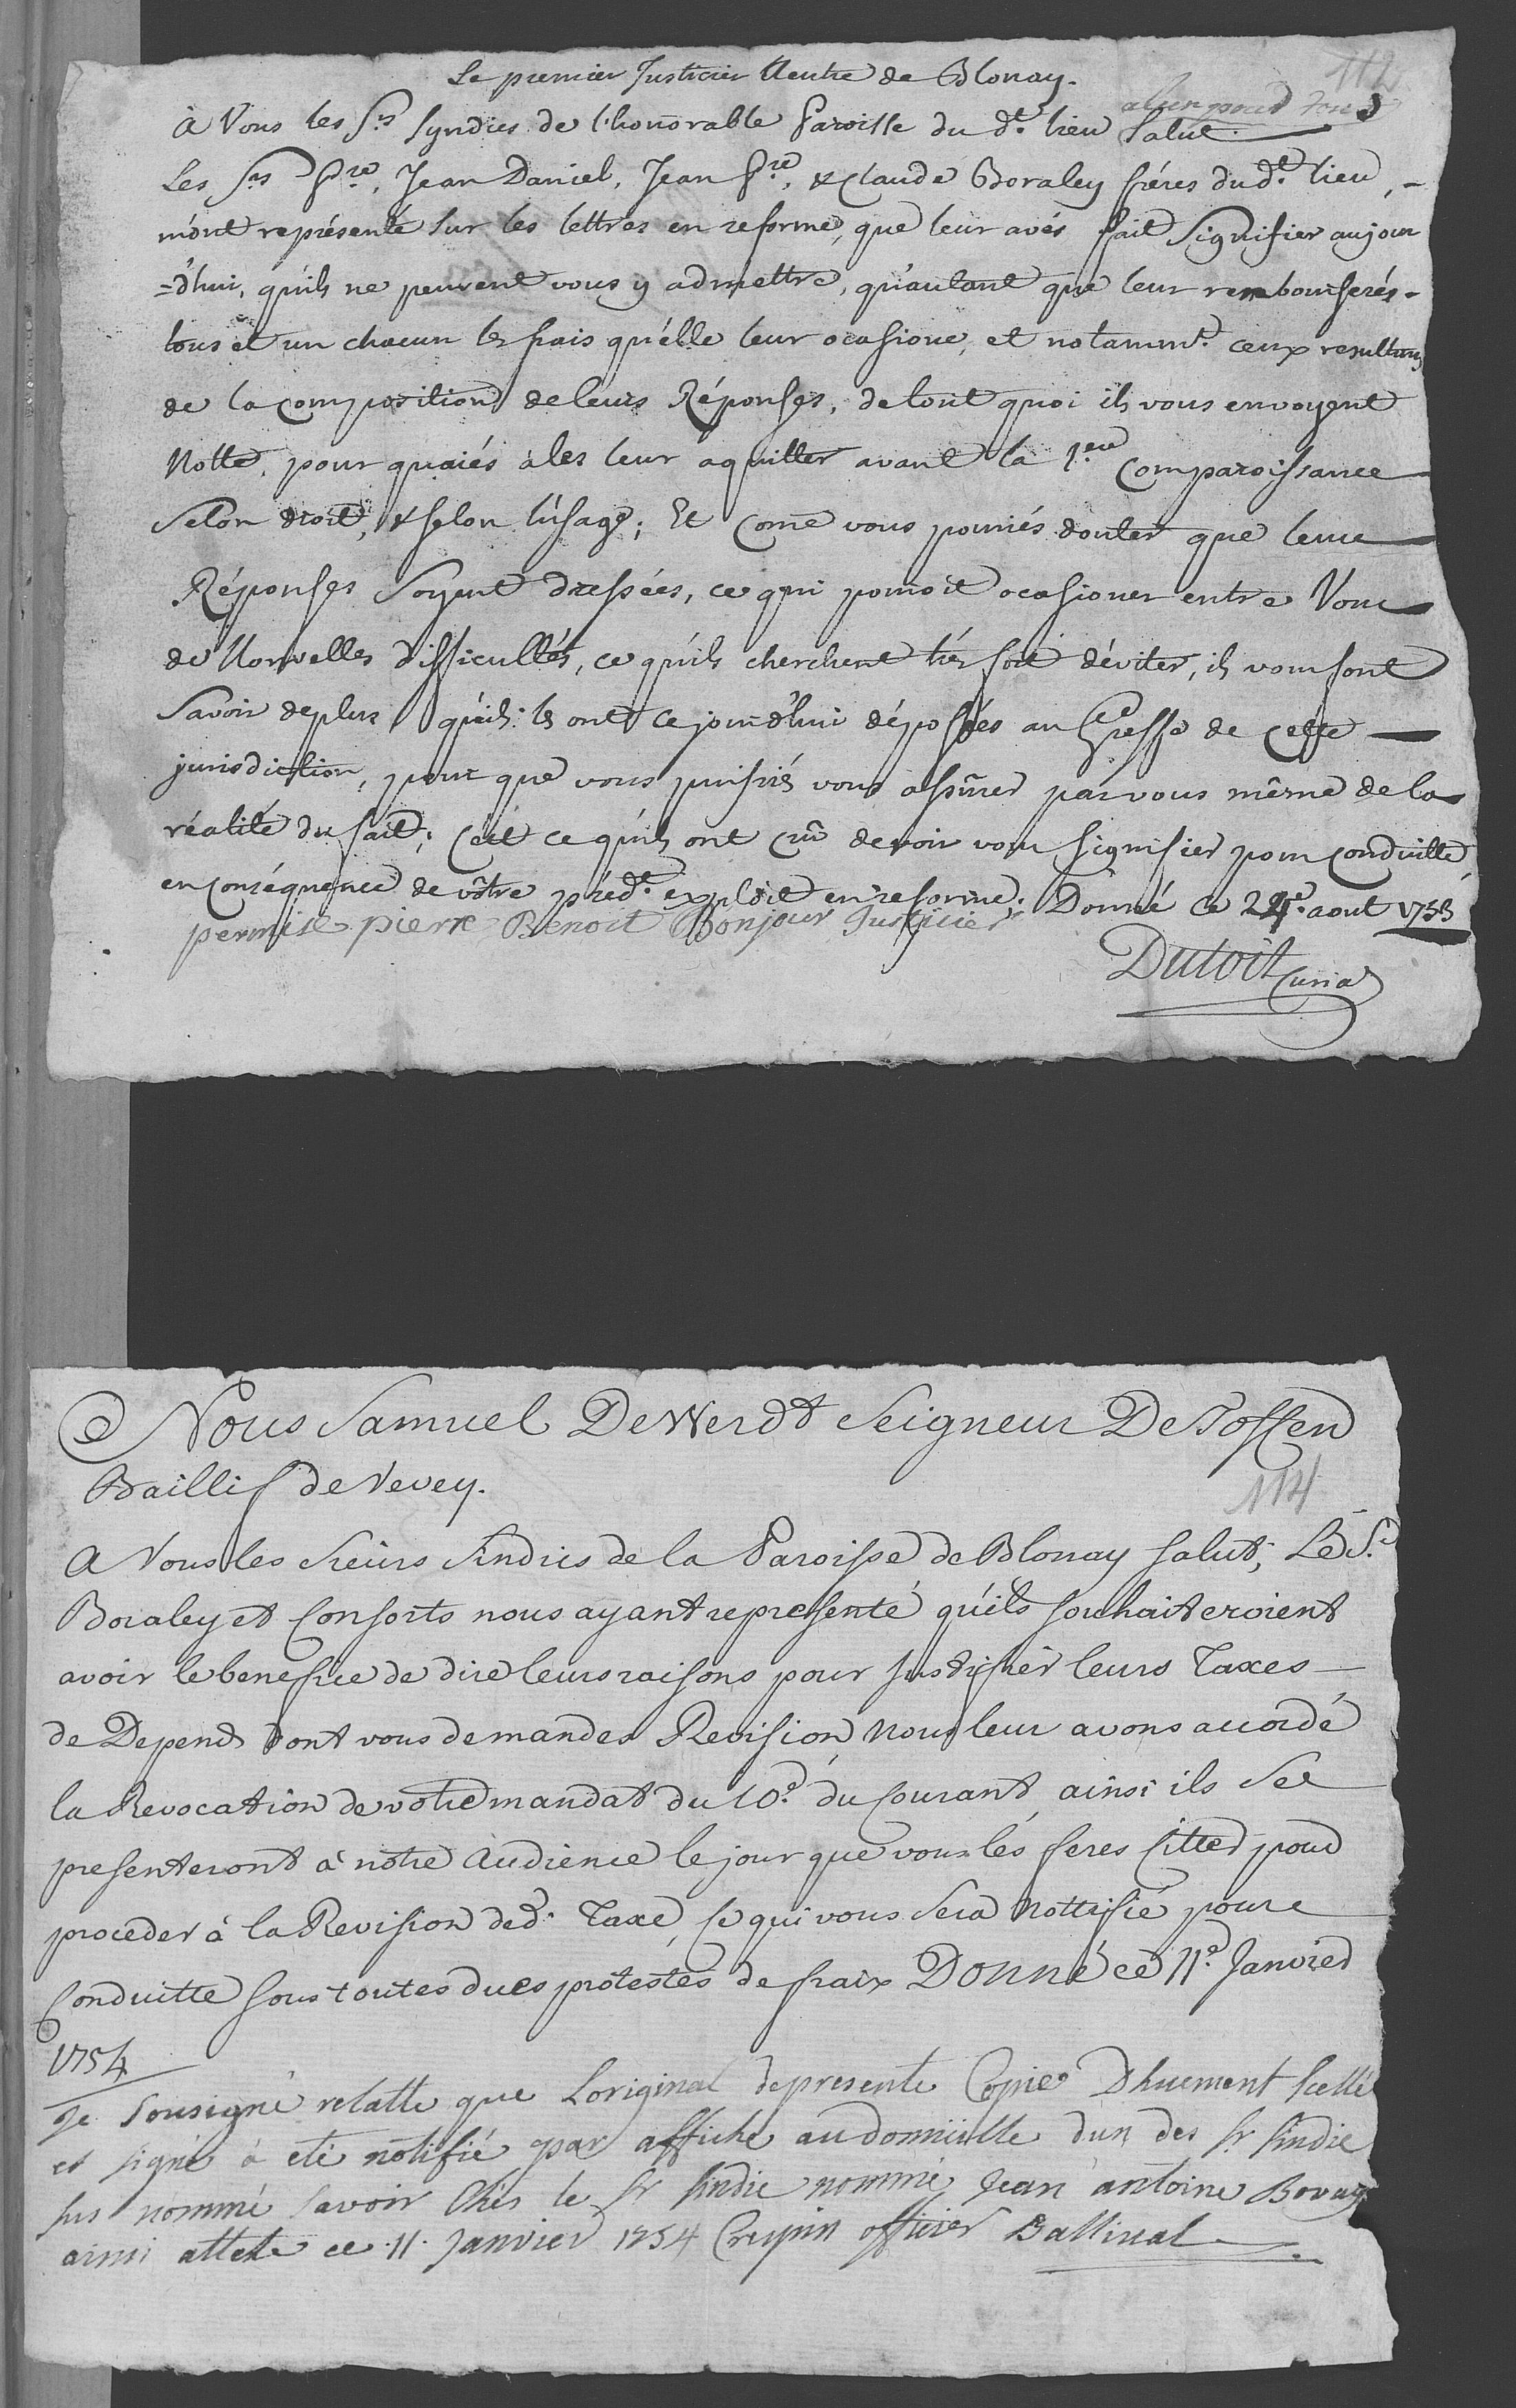 112
Le premier Justicier Neutre de Blonay.
à Vous les Srs Syndics de l'honorable Paroisse du dt. lieu Salut.
Les Srs Pre, Jean Daniel, Jean Fre, & Claude Boraley fréres dudt. lieu,
m'ont représenté sur les lettres en reforme, que leur avés fait Signifier aujour
=d'hui, qu'ils ne peuvent vous y admettre, qu'autant que leur rembourserés
tous et un chacun les frais qu'elle leur ocasione, et notammt. ceux resultans
de la composition de leurs Réponses, de tout quoi ils vous envoyent
Notte, pour qu'aiés à les leur aquitter avant la 1ere Comparoissance
Selon droit, & selon l'usage; Et Come vous pouriés douter que leurs
Réponses Soyent dressées, ce qui pouroit ocasioner entre Vous
de Nouvelles difficultés, ce qu'ils cherchent trés fort d'éviter, ils vous font
Savoir de plus qu'ils les ont ce jourd'hui déposées au Greffe de Cette
jurisdiction, pour que vous puissiés vous assurer par vous même de la
réalité du fait; C'est ce qu'ils ont crû devoir vous signifier pour Conduitte
en conséquence de vôtre prédt. exploit en reforme. Donné Ce 24e. aout 1753
permise pierre Benoit Bonjour Justicier
Dutoit Curial
Nous Samuel De Werdt Seigneur De Toffen
Baillif de Vevey.
114
A Vous les Sieurs Sindics de la Paroisse de Blonay salut; Le Sr.
Boraley et Consorts nous ayant representé qu'ils souhaiteroient
avoir le benefice de dire leurs raisons pour Justifier leurs Taxes
de Depends dont vous demandes Revision Nous leur avons accordé
la Revocation de votre mandat du 10e. du Courant ainsi ils Se
presenteront à nôtre Audience le jour que vous lés feres Citter pour
proceder à la Revision ded. Taxe, Ce qui vous sera Nottifié pour
Conduitte sous toutes dues protestes de fraix Donné ce 11e. Janvier
1754
Je Sousigné relatte que Loriginal de presente Copie Dhuement Scellé
et signé à eté notifié par affiche au domicille d'un des Sr sindic
sus nommé savoir Chés le Sr sindic nommé Jean antoine Bovay
ainsi atteste ce 11. Janvier 1754 Crepin officier Ballival